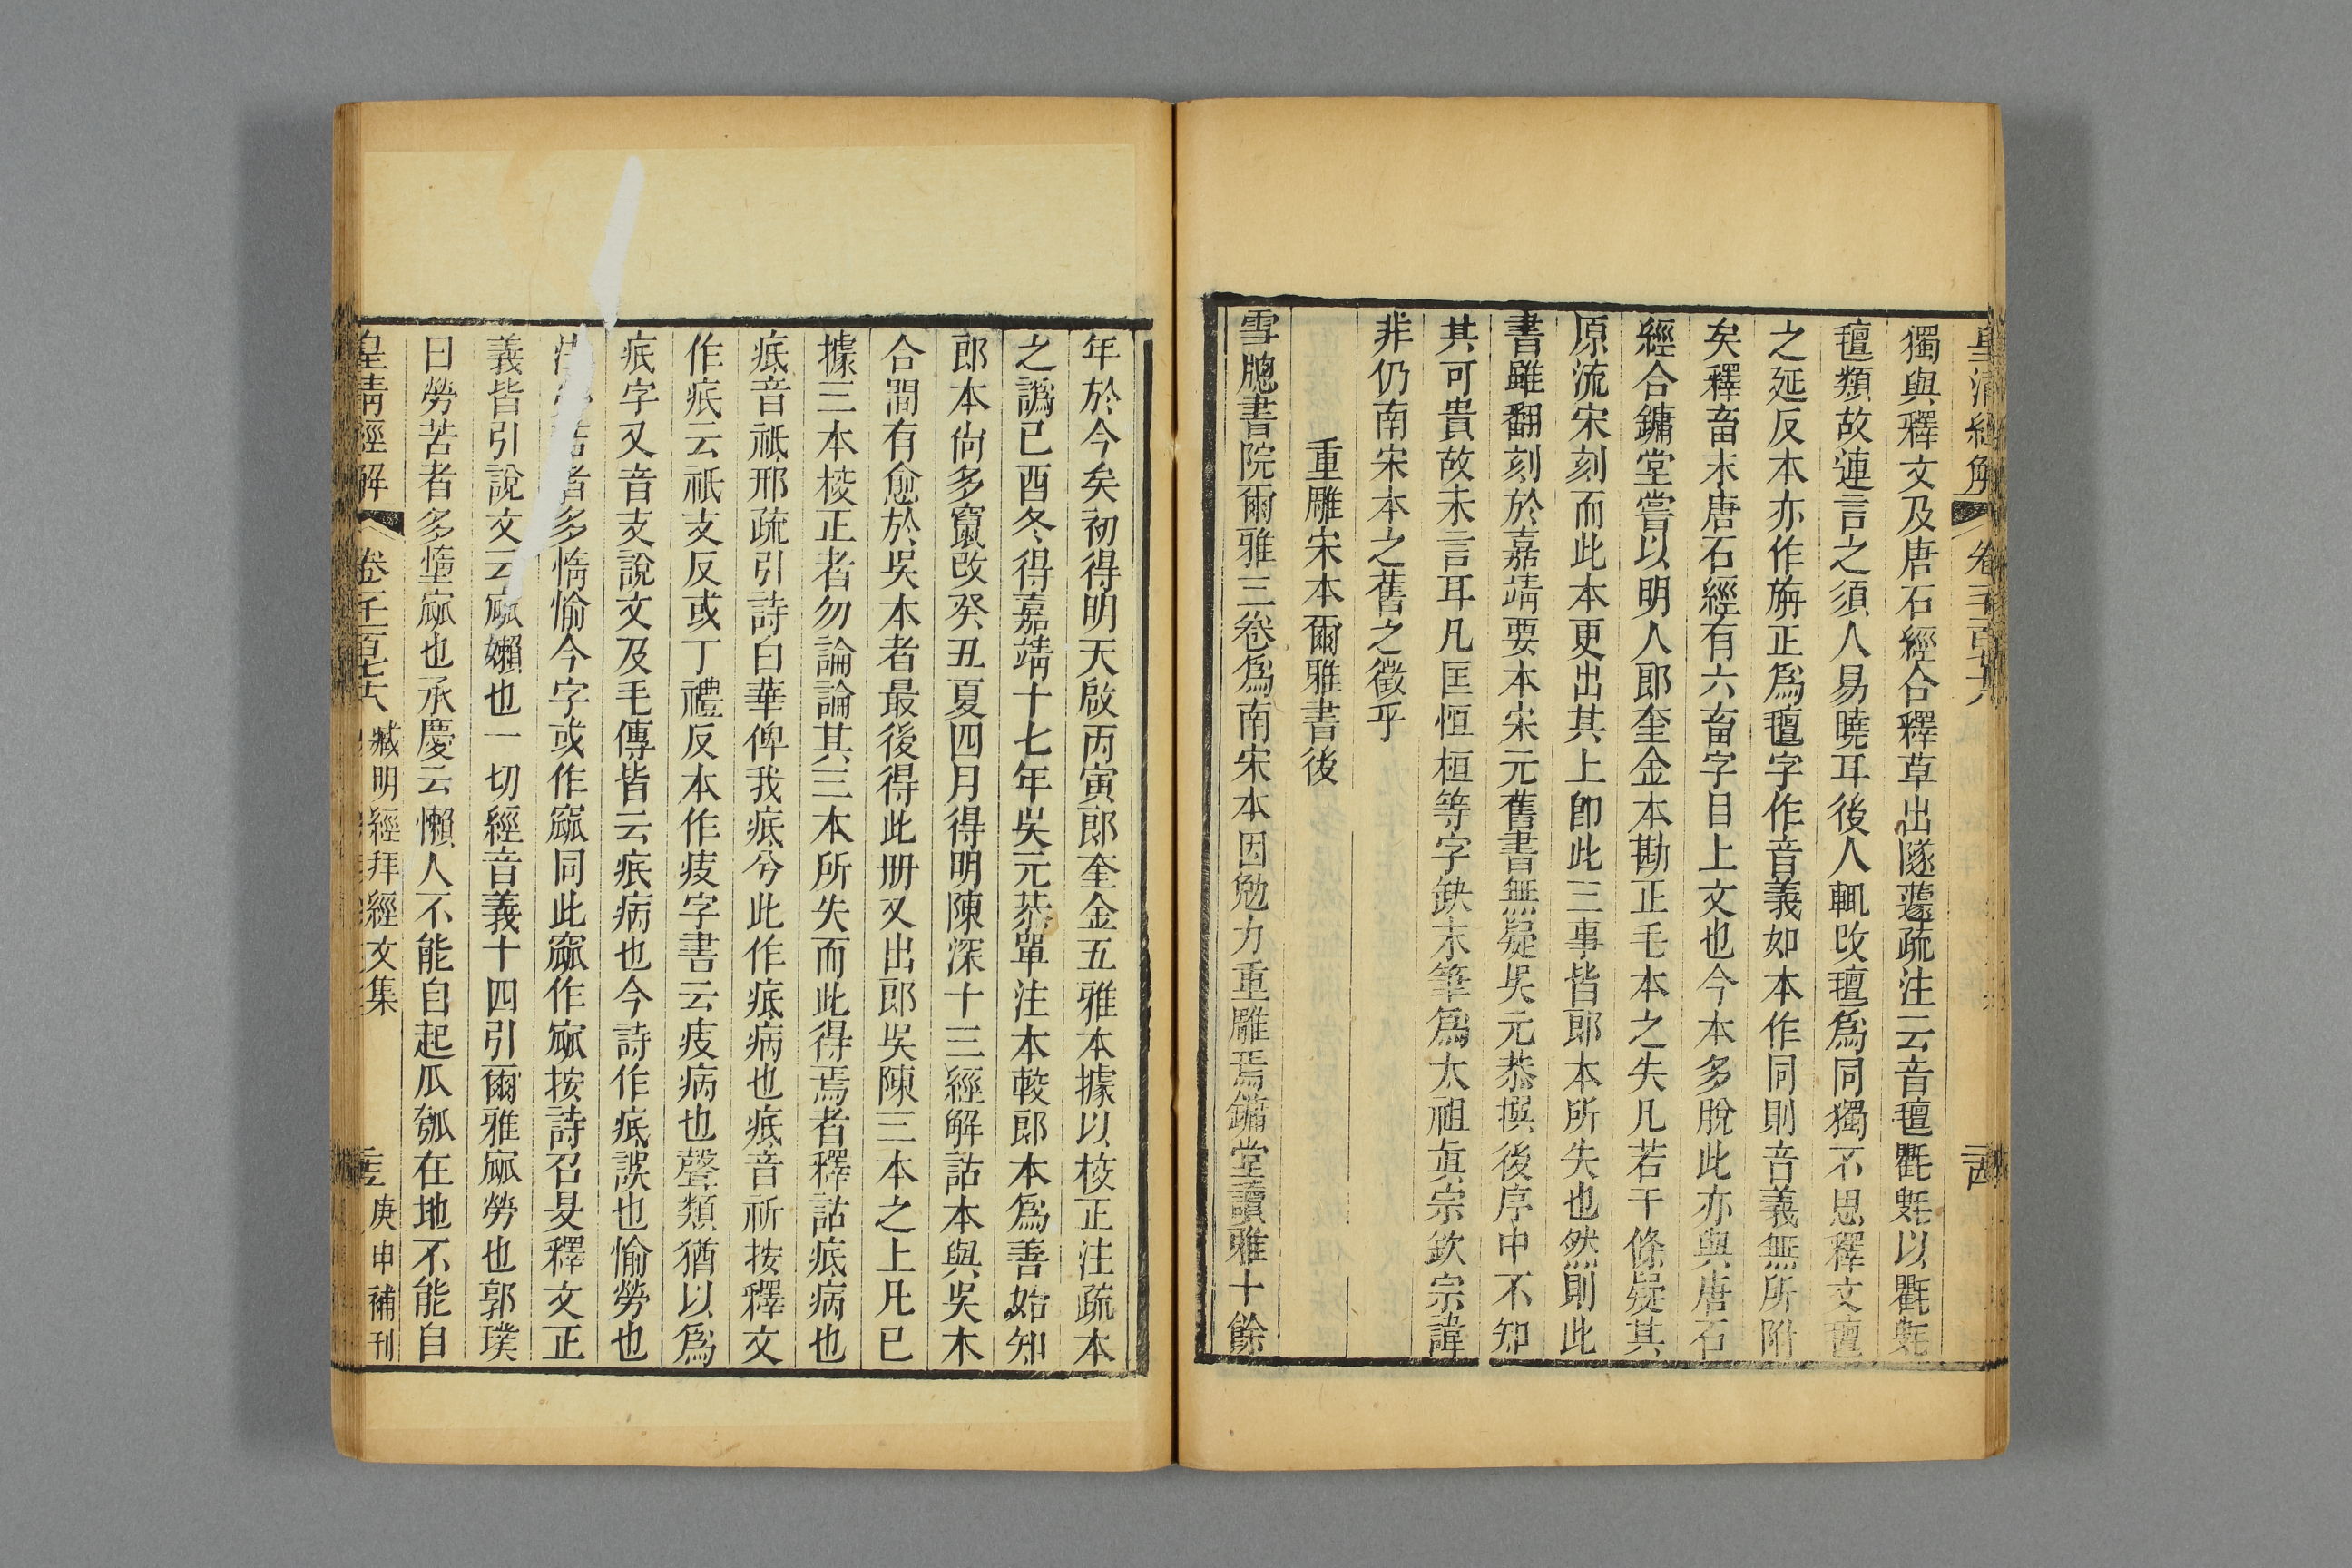 皇清經解 卷千一百七十八 二西
獨與釋文及唐石經合釋草出隧蘧疏注云音氊氍毹以氍毹
氊類故連言之須人易曉耳後人輒改氊爲同獨不思釋文氊
之延反本亦作旃正爲氊字作音義如本作同則音義無所附
矣釋畜末唐石經有六畜字目上文也今本多脫此亦與唐石
經合鏞堂嘗以明人郎奎金本勘正毛本之失凡若干條疑其
原流宋刻而此本更出其上卽此三事皆郎本所失也然則此
書雖翻刻於嘉靖要本宋元舊書無疑吳元恭撰後序中不知
其可貴故未言耳凡匡恒桓等字缺末筆爲太祖眞宗欽宗諱
非仍南宋本之舊之徵乎
重雕宋本爾雅書後
雪牕書院爾雅三卷爲南宋本因勉力重雕焉鏞堂讀雅十餘
年於今矣初得明天啟丙寅郎奎金五雅本據以挍正注疏本
之譌己酉冬得嘉靖十七年吳元恭單注本較郎本爲善始知
郎本尙多竄改癸丑夏四月得明陳深十三經解詁本與吳本
合閒有愈於吳本者最後得此册又出郎吳陳三本之上凡已
據三本挍正者勿論論其三本所失而此得焉者釋詁疷病也
疷音祇邢疏引詩白華俾我疷兮此作疷病也疷音祈按釋文
作疧云祇支反或丁禮反本作疲字書云疲病也聲類猶以爲
疧字又音支說文及毛傳皆云疧病也今詩作疷誤也愉勞也
注勞苦者多惰愉今字或作窳同此窳作㼌按詩召旻釋文正
義皆引說文云㼌嬾也一切經音義十四引爾雅㼌勞也郭璞
曰勞苦者多墯㼌也承慶云懶人不能自起瓜瓠在地不能自
皇清經解 卷千一百七十八 臧明經拜經文集 庚申補刊